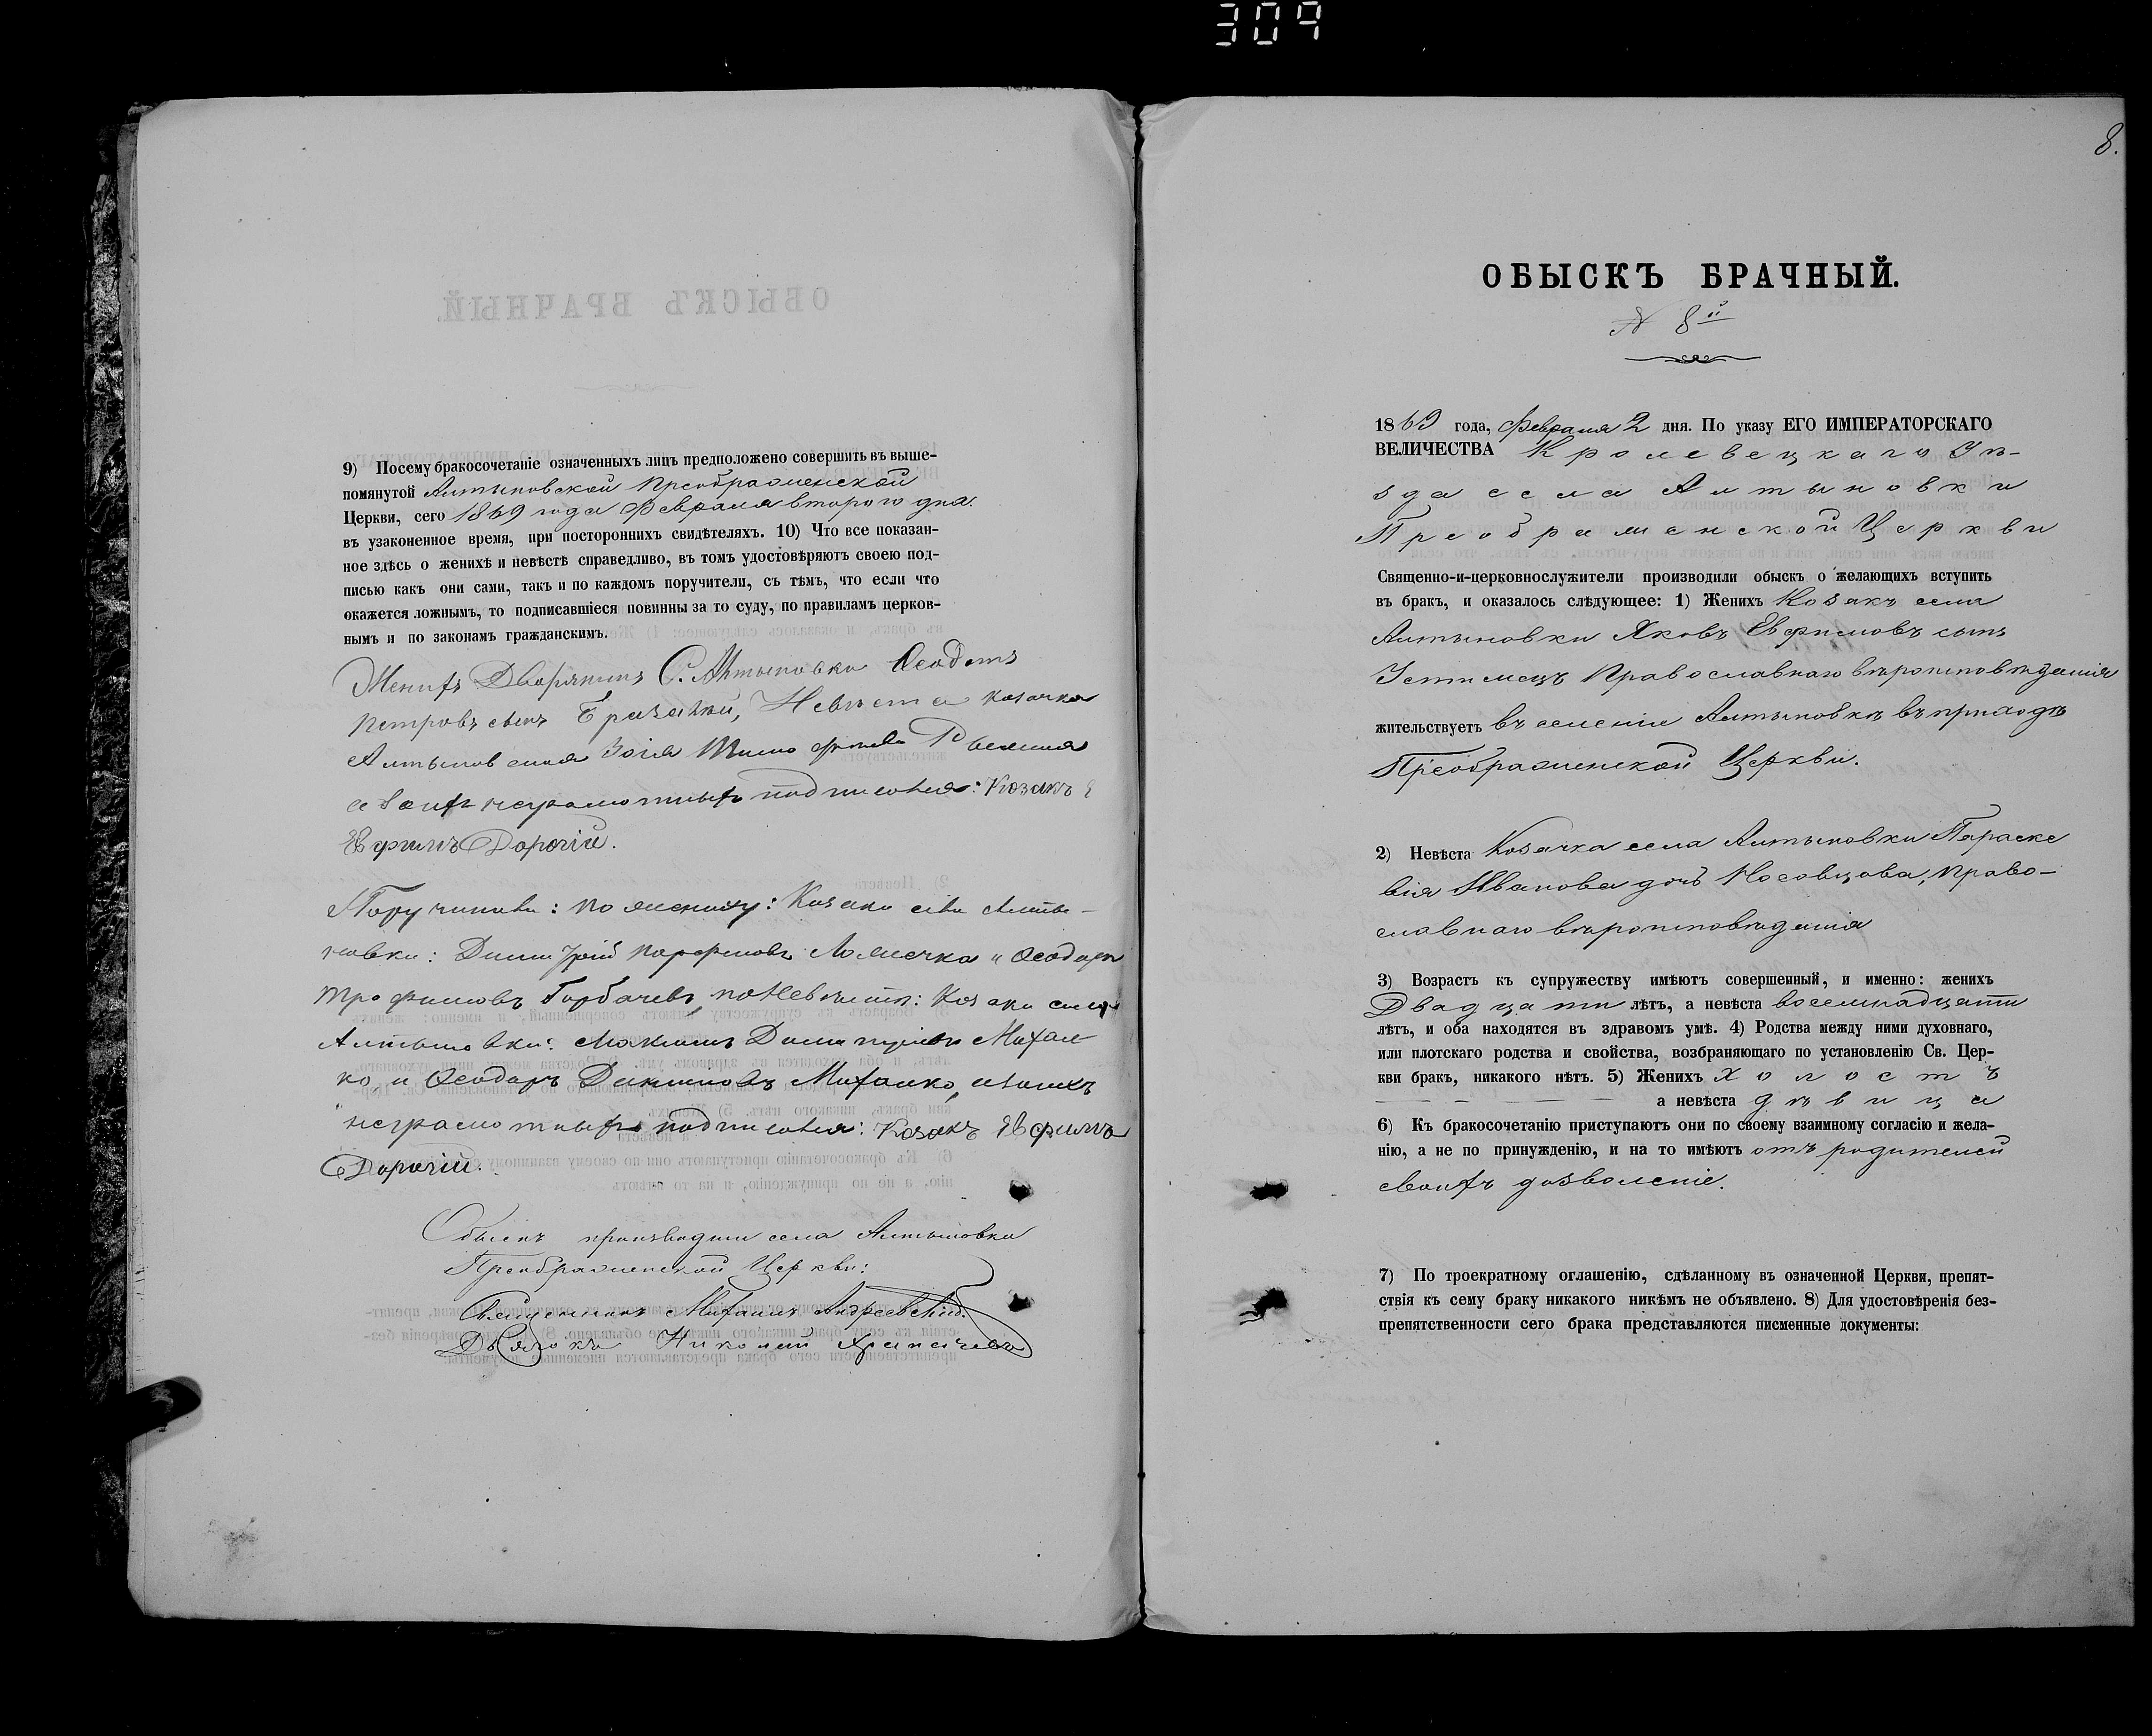 309
9) Посему бракосочетаніе означенныхъ лицъ предположено совершить въ выше-
помянутой Алтыновской Преображенской
Церкви, сего 1869 года Февраля второго дня.
въ узаконенное время, при постороннихъ свидѣтеляхъ. 10) Что все показан-
ное здѣсь о женихѣ и невѣстѣ справедливо, въ томъ удостовѣряютъ своею под-
писью какъ они сами, такъ и по каждомъ поручители, съ тѣмъ, что если что
окажется ложнымъ, то подписавшіеся повинны за то суду, по правиламъ церков-
нымъ и по законамъ гражданскимъ.
Женихъ Дворянинъ С. Алтыновки Ѳеодотъ
Петровъ сынъ Невѣста козачка
Алтыновская
неграмотныхъ Козакъ
Евфимъ Дорогій.
Поручители: по женихѣ: Козаки села Алты-
новки: Димитрій Парфеновъ и Ѳеодоръ
Трофимовъ Горбачевъ, по Невѣстѣ: Козаки села
Алтыновки: Максимъ Димитріевъ Михал-
ко и Ѳеодоръ Михалко, а за нихъ
неграмотныхъ Козакъ Евфимъ
Дорогій.
Обыскъ производили села Алтыновки
Преображенской Церкви:
Священникъ Михаилъ Андреевскій.
Дьячокъ Николай
8.
ОБЫСКЪ БРАЧНЫЙ.
№ 8й
1869 года, Февраля 2 дня. По указу ЕГО ИМПЕРАТОРСКАГО
ВЕЛИЧЕСТВА Кролевецкаго Уѣ-
зда села Алтыновки
Преображенской Церкви
Священно-и-церковнослужители производили обыскъ о желающихъ вступить
въ бракъ, и оказалось слѣдующее: 1) Женихъ Козакъ села
Алтыновки Яковъ Евфимовъ сынъ
Устимецъ Православнаго вѣроисповѣданія
жительствуетъ въ селеніи Алтыновкѣ въ приходѣ
Преображенской Церкви.
2) Невѣста Козачка села Алтыновки Параске
вія Иванова дочь Носовцова, Право-
славнаго вѣроисповѣданія
3) Возрастъ къ супружеству имѣютъ совершенный, и именно: женихъ
Двадцати лѣтъ, а невѣста восемнадцати
лѣтъ, и оба находятся въ здравомъ умѣ. 4) Родства между ними духовнаго,
или плотскаго родства и свойства, возбраняющаго по установленію Св. Цер-
кви бракъ, никакого нѣтъ. 5) Женихъ холостъ
а невѣста дѣвица
6) Къ бракосочетанію приступаютъ они по своему взаимному согласію и жела-
нію, а не по принужденію, и на то имѣютъ отъ родителей
своихъ дозволеніе.
7) По троекратному оглашенію, сдѣланному въ означенной Церкви, препят-
ствія къ сему браку никакого никѣмъ не объявлено. 8) Для удостовѣренія без-
препятственности сего брака представляются писменные документы: